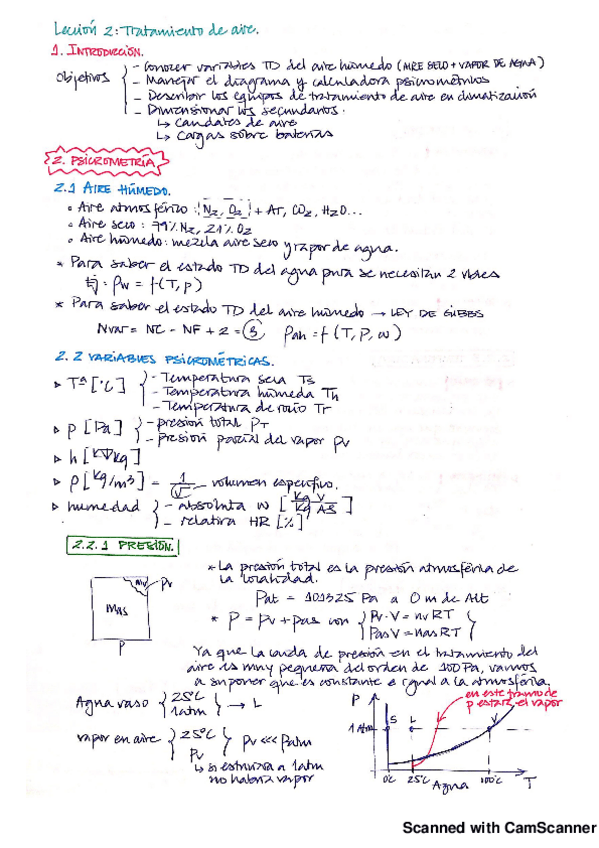 Lección 2: Tratamiento de aire.
1. INTRODUCCIÓN.
Objetivos
- Conocer variables TD del aire húmedo (AIRE SECO + VAPOR DE AGUA)
- Manejar el diagrama y calculadora psicrométricos
- Describir los equipos de tratamiento de aire en climatización
- Dimensionar los secundarios.
↳ Caudales de aire
↳ Cargas sobre baterías
2. PSICROMETRÍA
2.1 AIRE HÚMEDO.
∘ Aire atmosférico: N2, O2 + Ar, CO2, H2O...
∘ Aire seco: 79% N2, 21% O2
∘ Aire húmedo: mezcla aire seco y vapor de agua.
* Para saber el estado TD del agua pura se necesitan 2 vbles
ej: ρw = f(T, p)
* Para saber el estado TD del aire húmedo → LEY DE GIBBS
Nvar = NC - NF + 2 = 3 ρah = f(T, P, w)
2.2 VARIABLES PSICROMÉTRICAS.
▹ Tª [ºC]
- Temperatura seca Ts
- Temperatura húmeda Th
- Temperatura de rocío Tr
▹ p [Pa]
- presión total PT
- presión parcial del vapor Pv
▹ h [kJ/kg]
▹ ρ [kg/m³] = 1/V volumen específico.
▹ humedad
- absoluta w [kg V/kg AS]
- relativa HR [%]
2.2.1 PRESIÓN.
* La presión total es la presión atmosférica de
la localidad.
Pat = 101325 Pa a 0 m de Alt
mv Pv
mas
P
* P = pv + pas con
Pv·V = nv RT
Pas V = nas RT
Ya que la caída de presión en el tratamiento del
aire es muy pequeña del orden de 100 Pa, vamos
a suponer que es constante e igual a la atmosférica.
Agua vaso 25ºC 1atm → L
vapor en aire 25ºC Pv
Pv <<< Patm
↳ si estuviera a 1atm
no habría vapor
en este tramo de
p estará el vapor
P
1 Atm
S L V
0ºC 25ºC Agua 100ºC T
Scanned with CamScanner